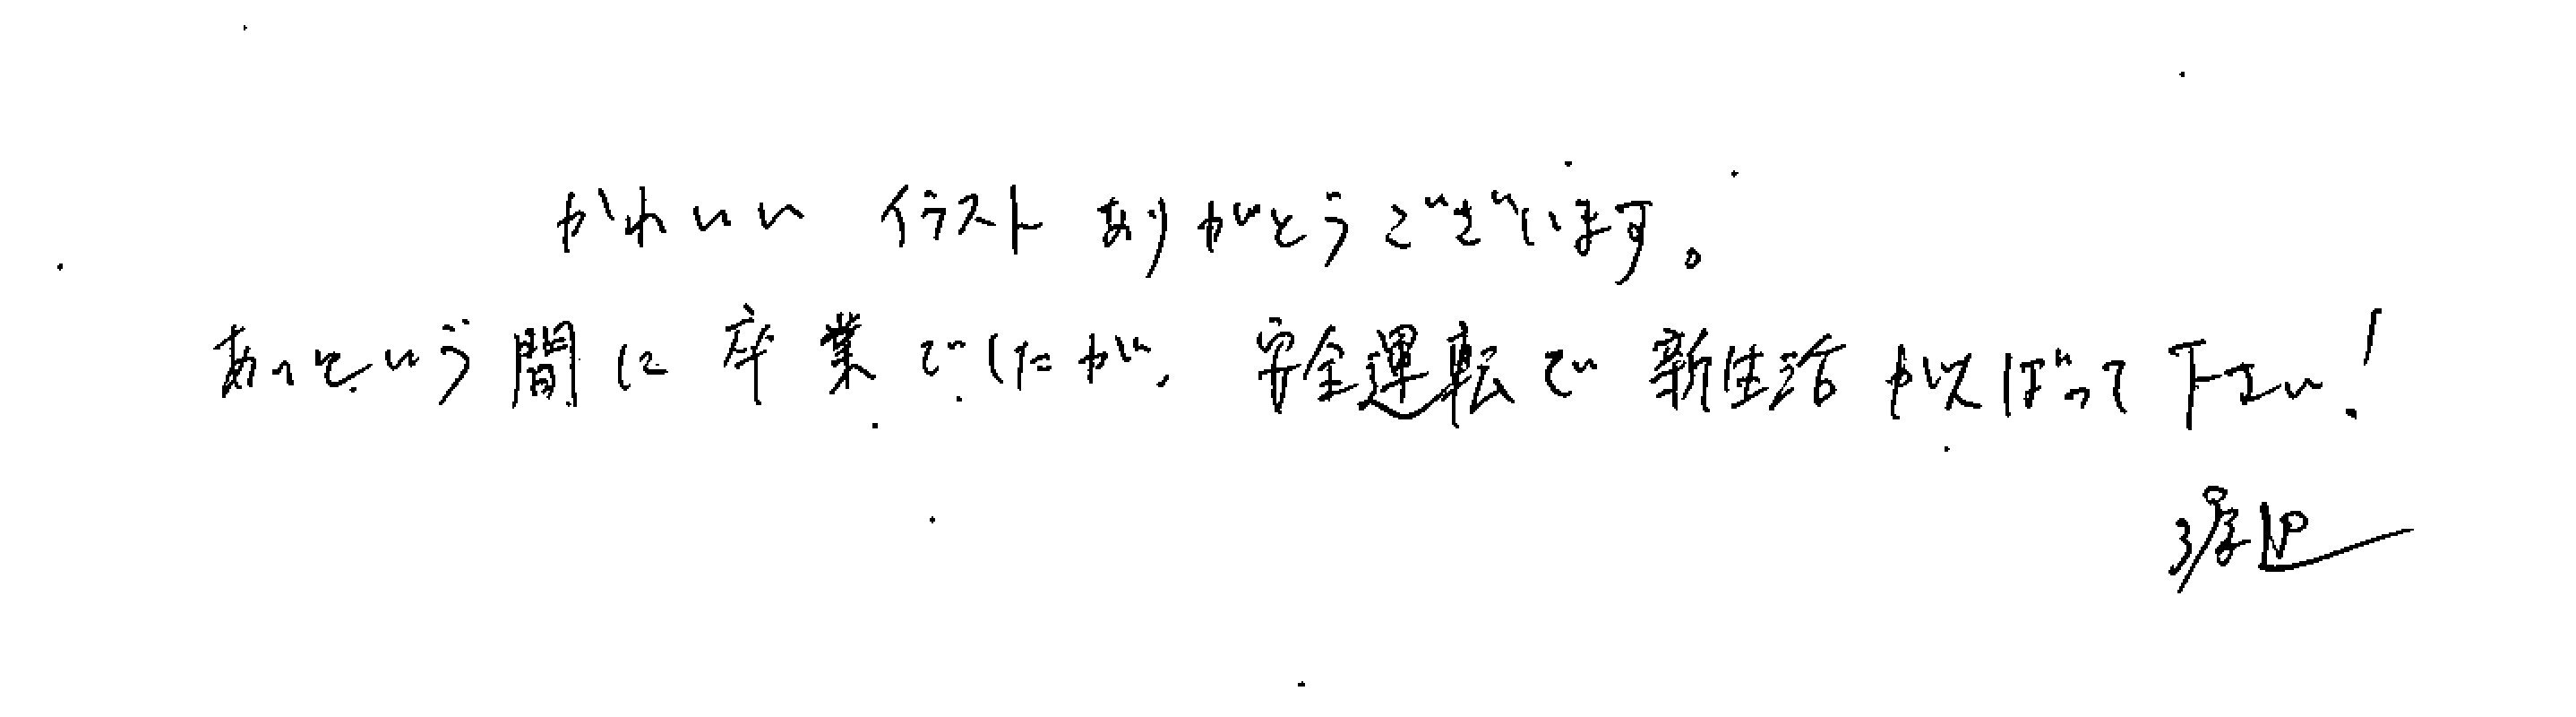 かわいい イラスト ありがとうございます。
あっという間に卒業でしたが、安全運転で新生活がんばって下さい!
渡辺